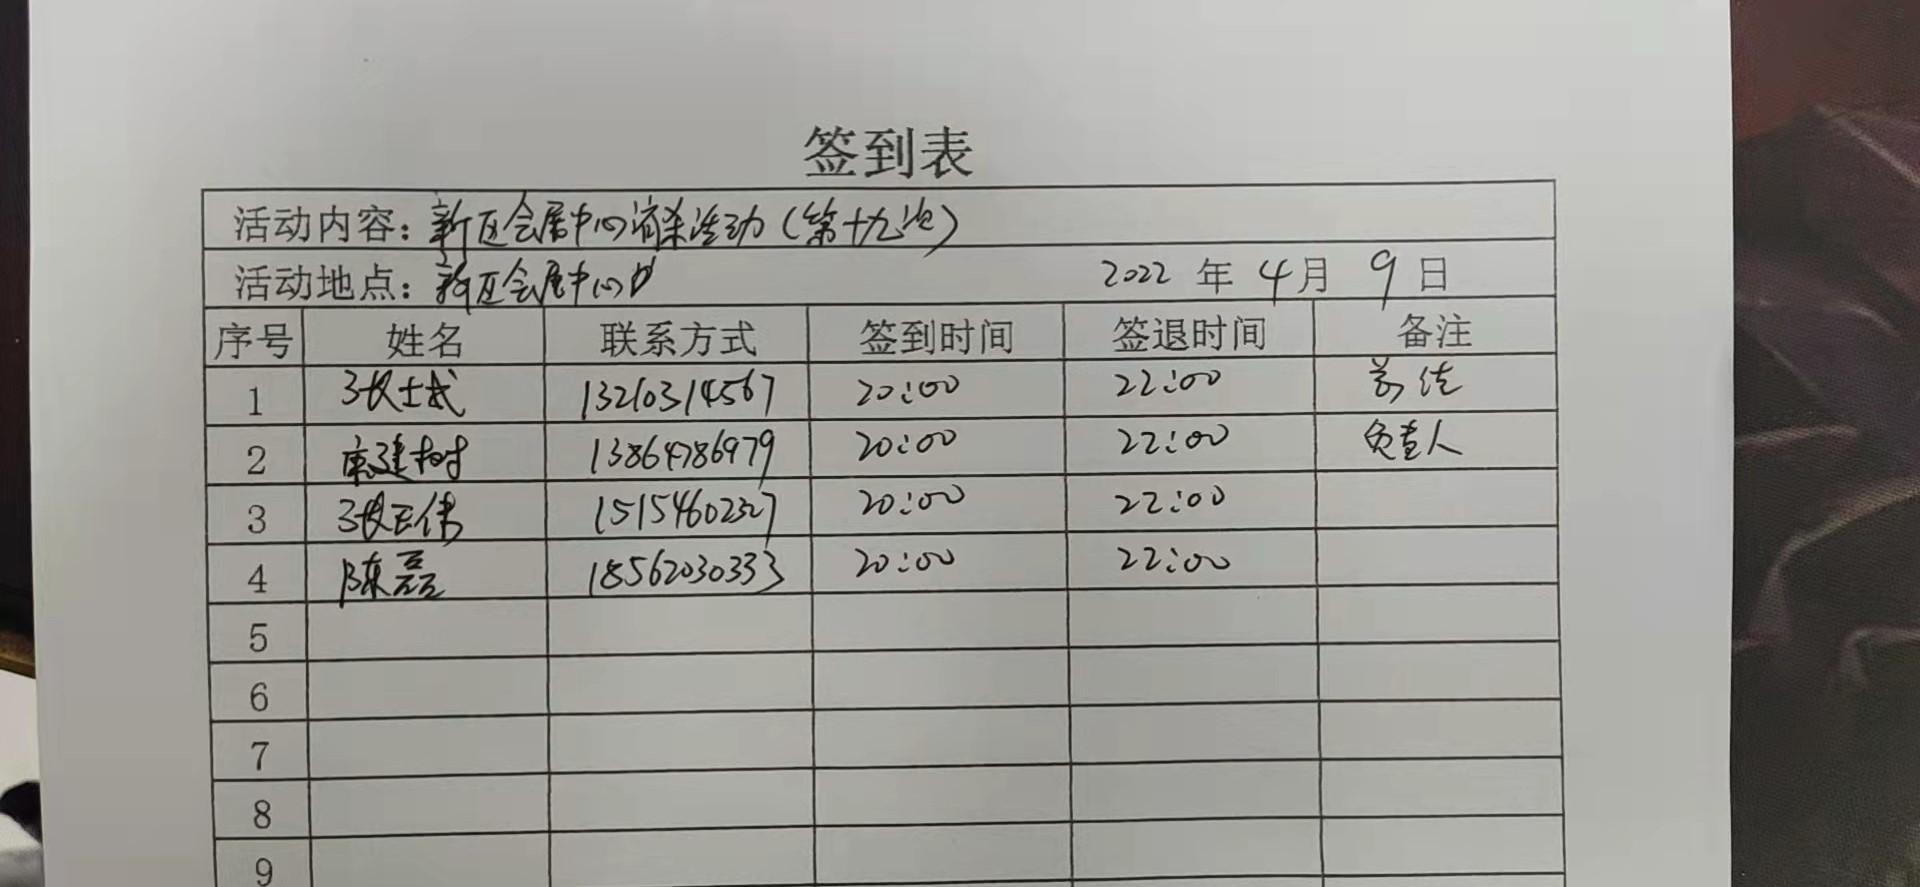 签到表
活动内容：新区会展中心消杀活动（第十九次）
活动地点：新区会展中心
2022 年 4月 9日
序号 姓名 联系方式 签到时间 签退时间 备注
1 张士武 13210314567 20:00 22:00
2 建树 13864786979 20:00 22:00 负责人
3 张正伟 15154602327 20:00 22:00
4 陈磊 18562030333 20:00 22:00
5
6
7
8
9